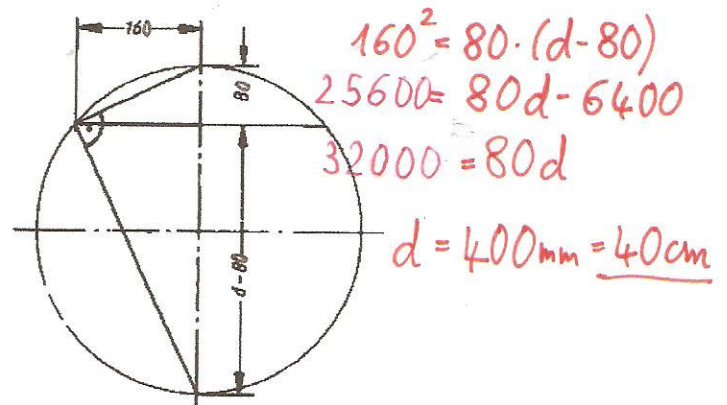 160
80
d-80
160² = 80·(d-80)
25600 = 80d-6400
32000 = 80d
d = 400mm = 40cm